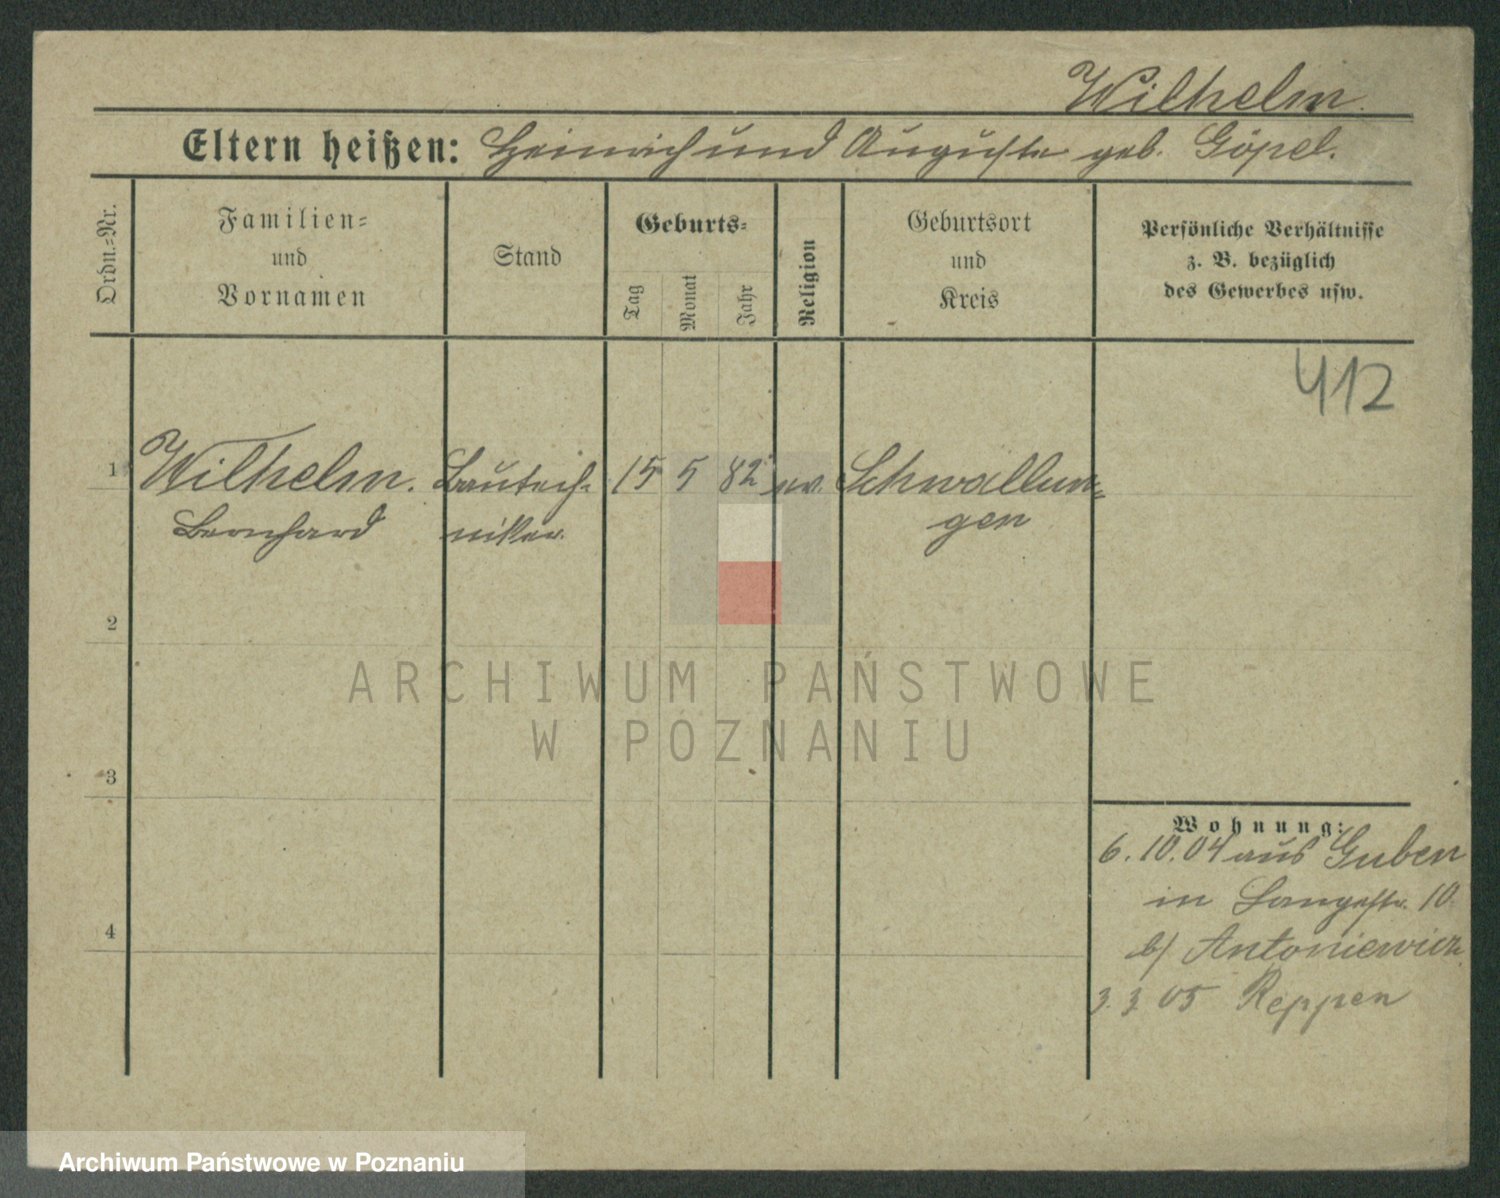 Wilhelm.
Eltern heißen: Heinrich und Auguste geb. Göpel.
Ordn.=Nr.
Familien=
und
Vornamen
Stand
Geburts=
Tag
Monat
Jahr
Religion
Geburtsort
und
Kreis
Persönliche Verhältnisse
z. B. bezüglich
des Gewerbes usw.
412
1 Wilhelm. Bautech= 15 5 82 ev. Schwallun=
Bernhard niker. gen
2
3
Wohnung:
6.10.04 aus Guben
in Langestr. 10
4
b/ Antoniewicz
3.3 05 Reppen
ARCHIWUM PAŃSTWOWE
W POZNANIU
Archiwum Państwowe w Poznaniu